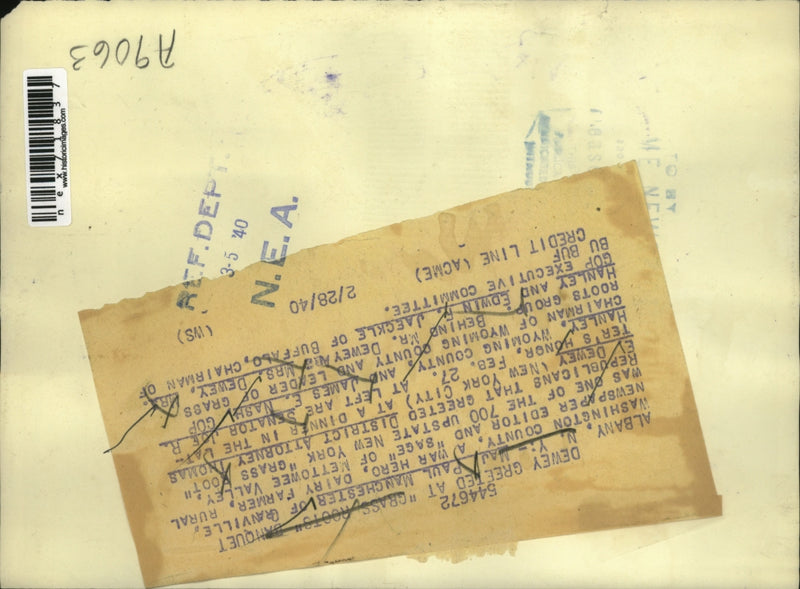 A9063
nex71837
www.historicimages.com
REF. DEPT.
3-5 '40
N.E.A.
544672
DEWEY GREETED AT "GRASS ROOTS" BANQUET
ALBANY, N.Y:- MAJ. PAUL MANCHESTER OF GRANVILLE,
WASHINGTON COUNTY, A "WAR HERO" DAIRY FARMER, RURAL
NEWSPAPER EDITOR AND "SAGE" OF METTOWEE VALLEY,
WAS ONE OF THE 700 UPSTATE NEW YORK "GRASS ROOT"
REPUBLICANS THAT GREETED DISTRICT ATTORNEY THOMAS
E. DEWEY (NEW YORK CITY) AT A DINNER IN THE
FEB. 27. AT LEFT ARE SENATOR
HANLEY, WYOMING COUNTY AND JAMES E. NASH, GOP
CHAIRMAN OF WYOMING COUNTY LEADER OF GRASS
ROOTS GROUP. BEHIND MR. AND MRS. DEWEY, ARE
HANLEY AND EDWIN F. JAECKLE OF BUFFALO, CHAIRMAN OF
GOP EXECUTIVE COMMITTEE.
BU BUF 2/28/40 (WS)
CREDIT LINE (ACME)